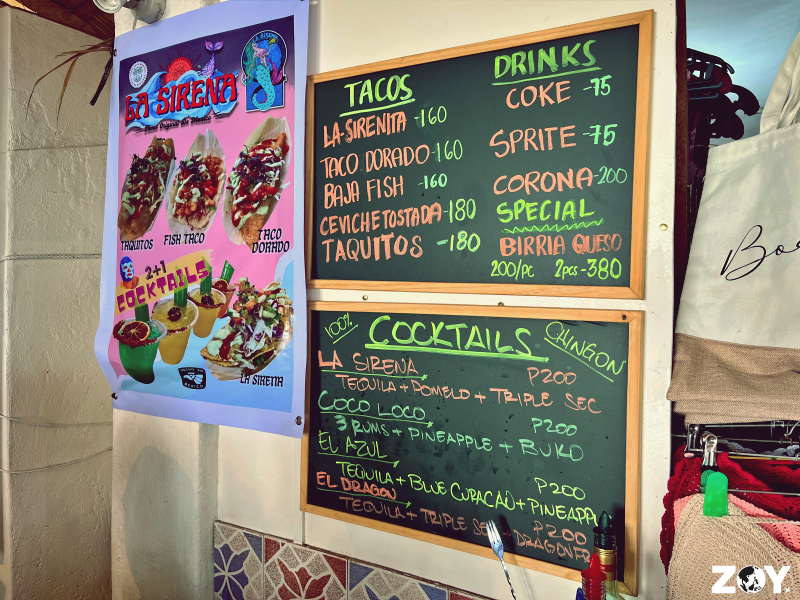 LA SIRENA
TAQUITOS
FISH TACO
TACO
DORADO
2+1
COCKTAILS
LA SIRENA
TACOS
LA SIRENITA -160
TACO DORADO -160
BAJA FISH -160
CEVICHE TOSTADA -180
TAQUITOS -180
DRINKS
COKE -75
SPRITE -75
CORONA -200
SPECIAL
BIRRIA QUESO
200/PC 2pcs -380
100%
COCKTAILS
CHINGON
LA SIRENA P200
TEQUILA + POMELO + TRIPLE SEC
COCO LOCO P200
3 RUMS + PINEAPPLE + BUKO
EL AZUL P200
TEQUILA + BLUE CURACAO + PINEAPPL
EL DRAGON P200
TEQUILA + TRIPLE SEC DRAGONFR
ZOY